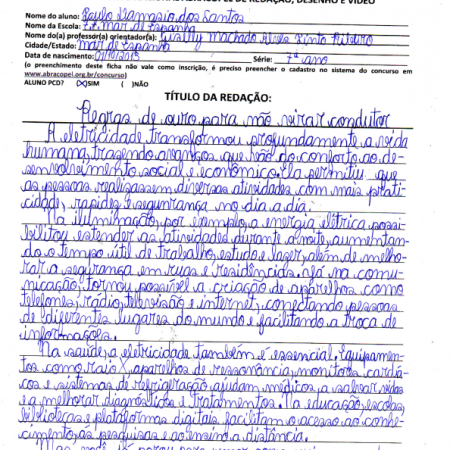 DE REDAÇÃO, DESENHO E VÍDEO
Nome do aluno: Paulo Damasio dos Santos
Nome da Escola: E.E. Mar de Espanha
Nome do(a) professor(a) orientador(a): Machado Alves Pinto Ribeiro
Cidade/Estado: Mar de Espanha
Data de nascimento: Série: 7º ano
(o preenchimento deste ficha não vale como inscrição, é preciso preencher o cadastro no sistema do concurso em
www.abracopel.org.br/concurso)
ALUNO PCD? (X)SIM ( )NÃO
TÍTULO DA REDAÇÃO:
Regras de ouro para não virar condutor
A eletricidade transformou profundamente a vida
humana, trazendo avanços que vão do conforto ao de-
senvolvimento social e econômico. Ela permitiu que
as pessoas realizassem diversas atividades com mais prati-
cidade, rapidez e segurança no dia a dia.
Na iluminação, por exemplo, a energia elétrica possi-
bilitou estender as atividades durante a noite, aumentan-
do o tempo útil de trabalho, estudo e lazer, além de melho-
rar a segurança em ruas e residências. Já na comu-
nicação, tornou possível a criação de aparelhos como
telefones, rádio, televisão e internet, conectando pessoas
de diferentes lugares do mundo e facilitando a troca de
informações.
Na saúde, a eletricidade também é essencial. Equipamen-
tos como raio X, aparelhos de ressonância, monitores cardía-
cos e sistemas de refrigeração ajudam médicos a salvar vidas
e a melhorar diagnósticos e tratamentos. Na educação, escolas,
bibliotecas e plataformas digitais facilitam o acesso ao conhe-
cimento, às pesquisas e ao ensino a distância.
Mas você já parou para